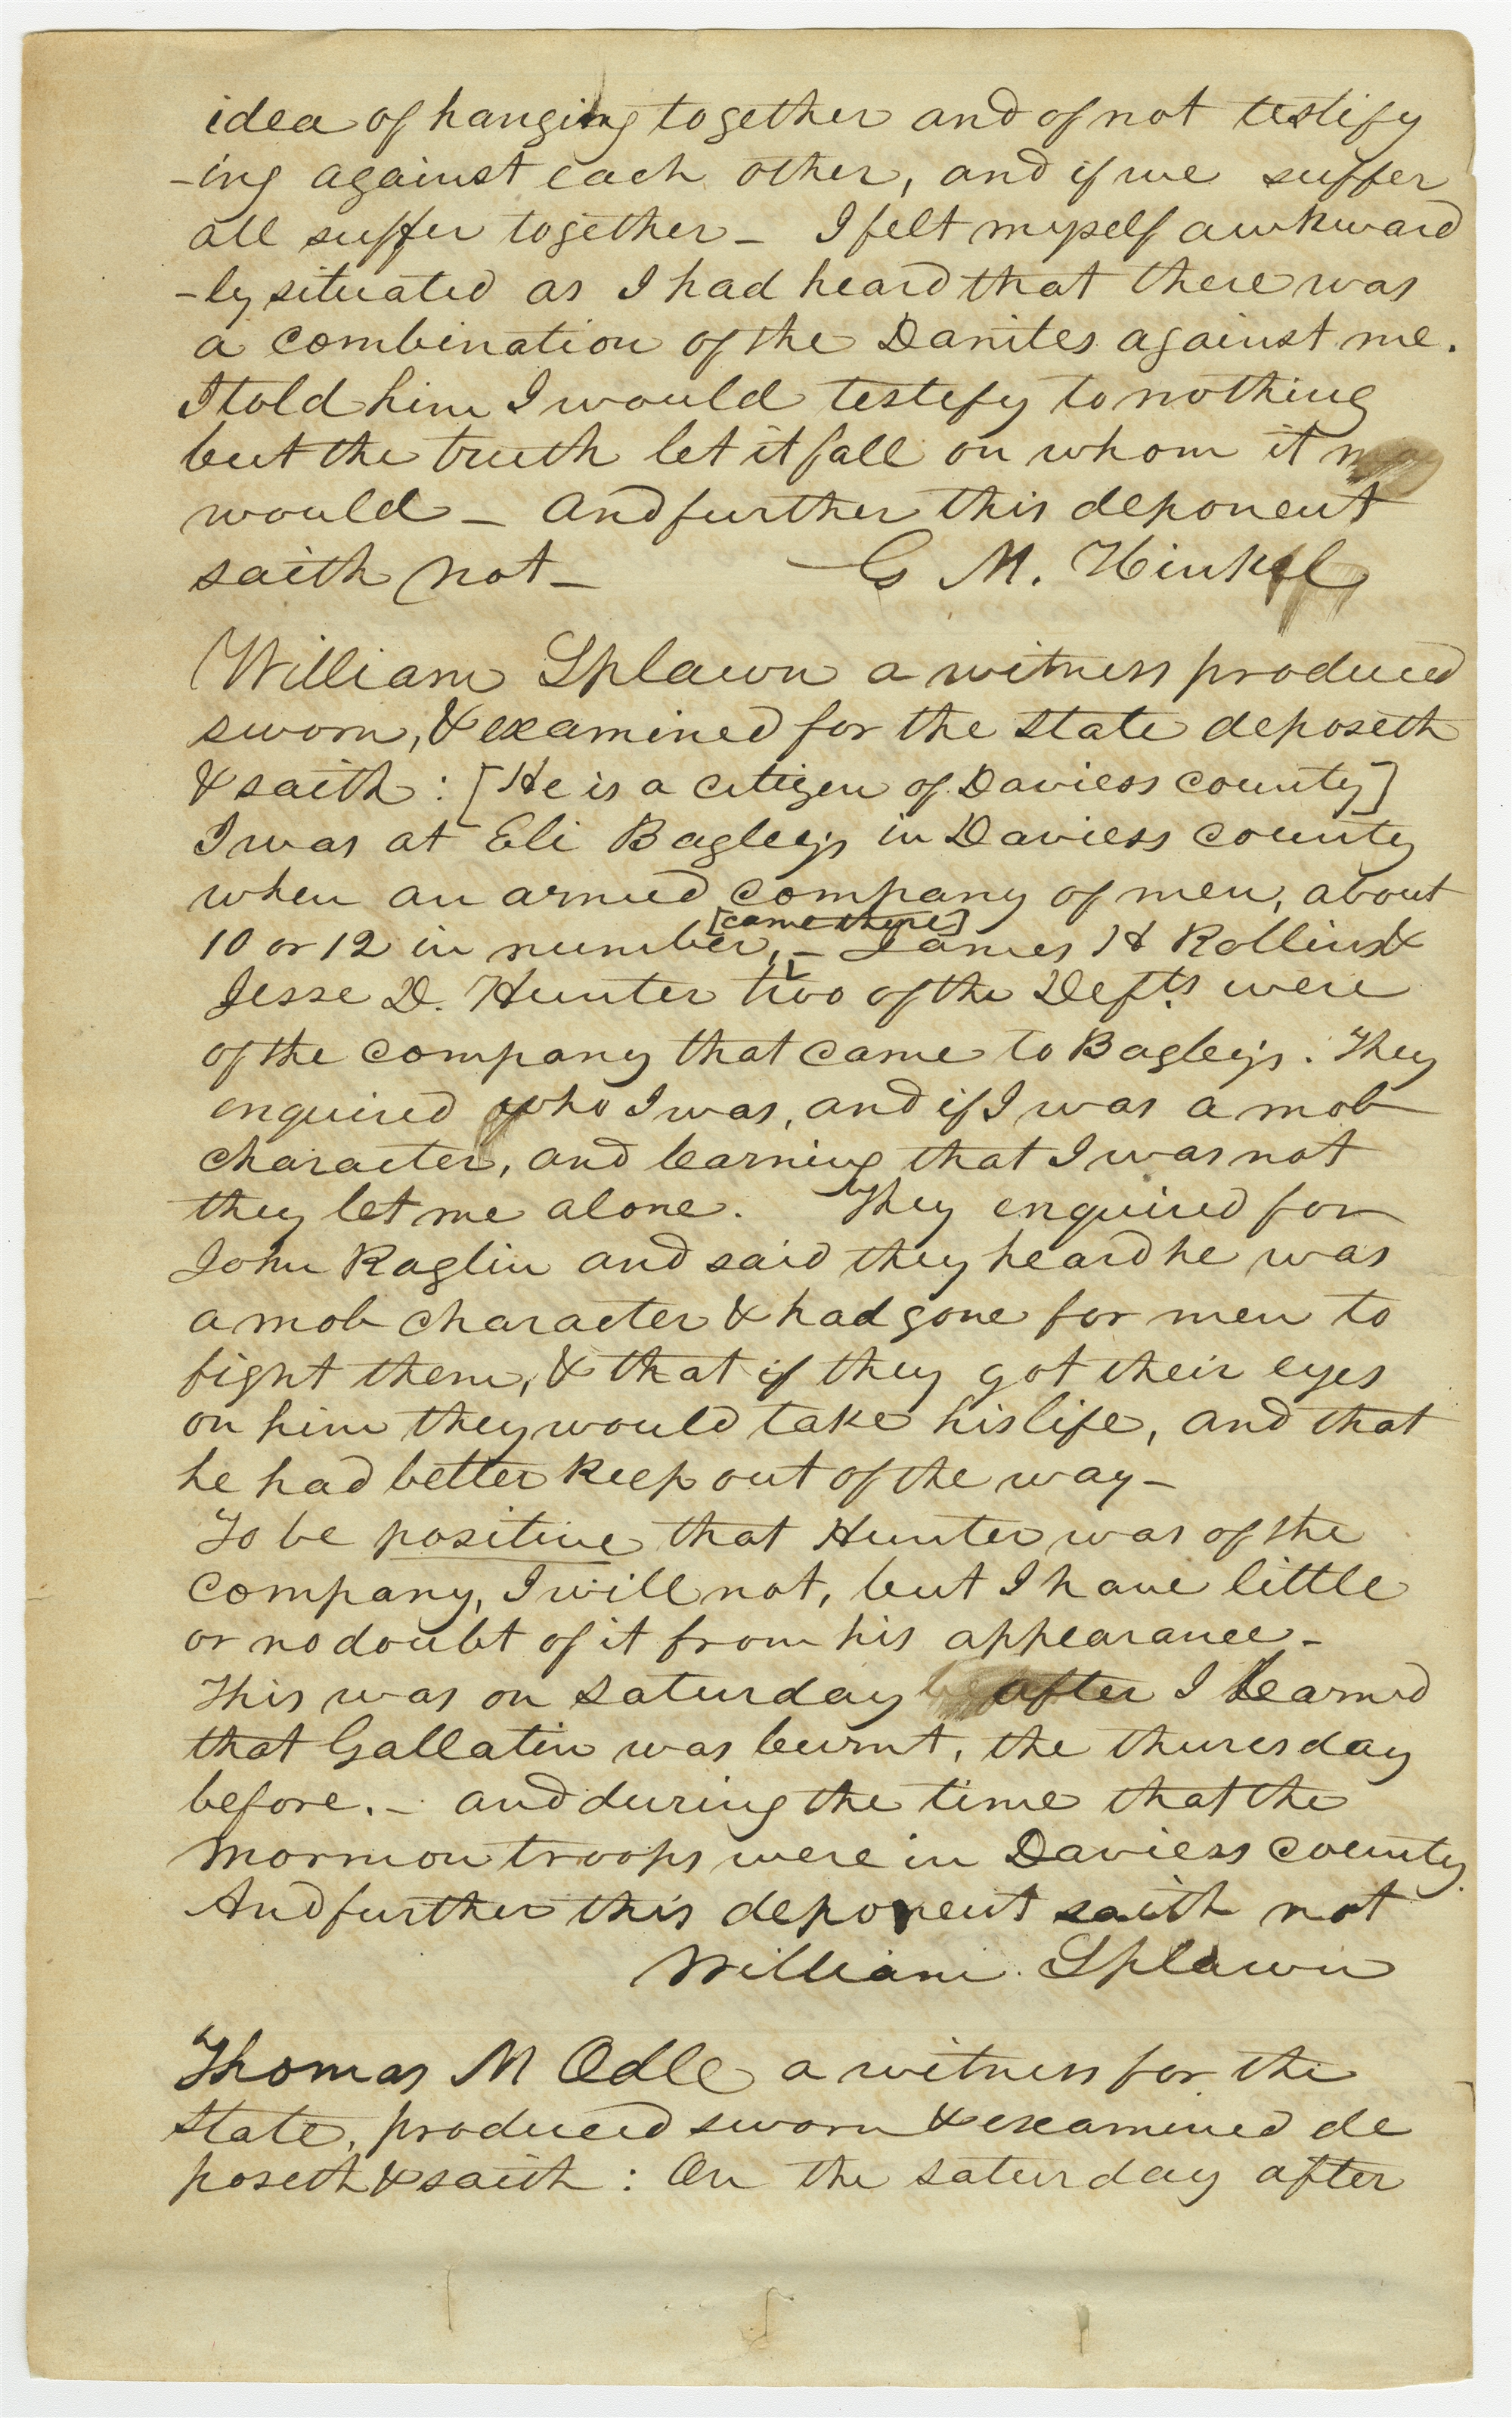 idea of hanging together and of not testify
-ing against each other, and if we suffer
all suffer together - I felt myself awkward
-ly situated as I had heard that there was
a combination of the Danites against me.
I told him I would testefy to nothing
but the truth let it fall on whom it
would - And further this deponent
saith not - G M. Hinkel
William Splawn a witness produced
sworn, & examined for the state deposeth
& saith : [He is a citizen of Daviess county]
I was at Eli Bagley's in Daviess county
when an armed company of men, about
[came there]
10 or 12 in number, - James H Rollins &
Jesse D. Hunter two of the Defts were
of the company that came to Bagley's. They
enquired who I was, and if I was a mob
character, and learning that I was not
they let me alone. They enquired for
John Raglin and said they heard he was
a mob character & had gone for men to
fight them, & that if they got their eyes
on him they would take his life, and that
he had better keep out of the way -
To be positive that Hunter was of the
company, I will not, but I have little
or no doubt of it from his appearance -
This was on saturday after I learned
that Gallatin was burnt, the thursday
before. - and during the time that the
mormon troops were in Daviess county.
And further this deponent saith not
William Splawn
Thomas M Odle a witness for the
state, produced sworn & examined de
poseth & saith : On the saturday after